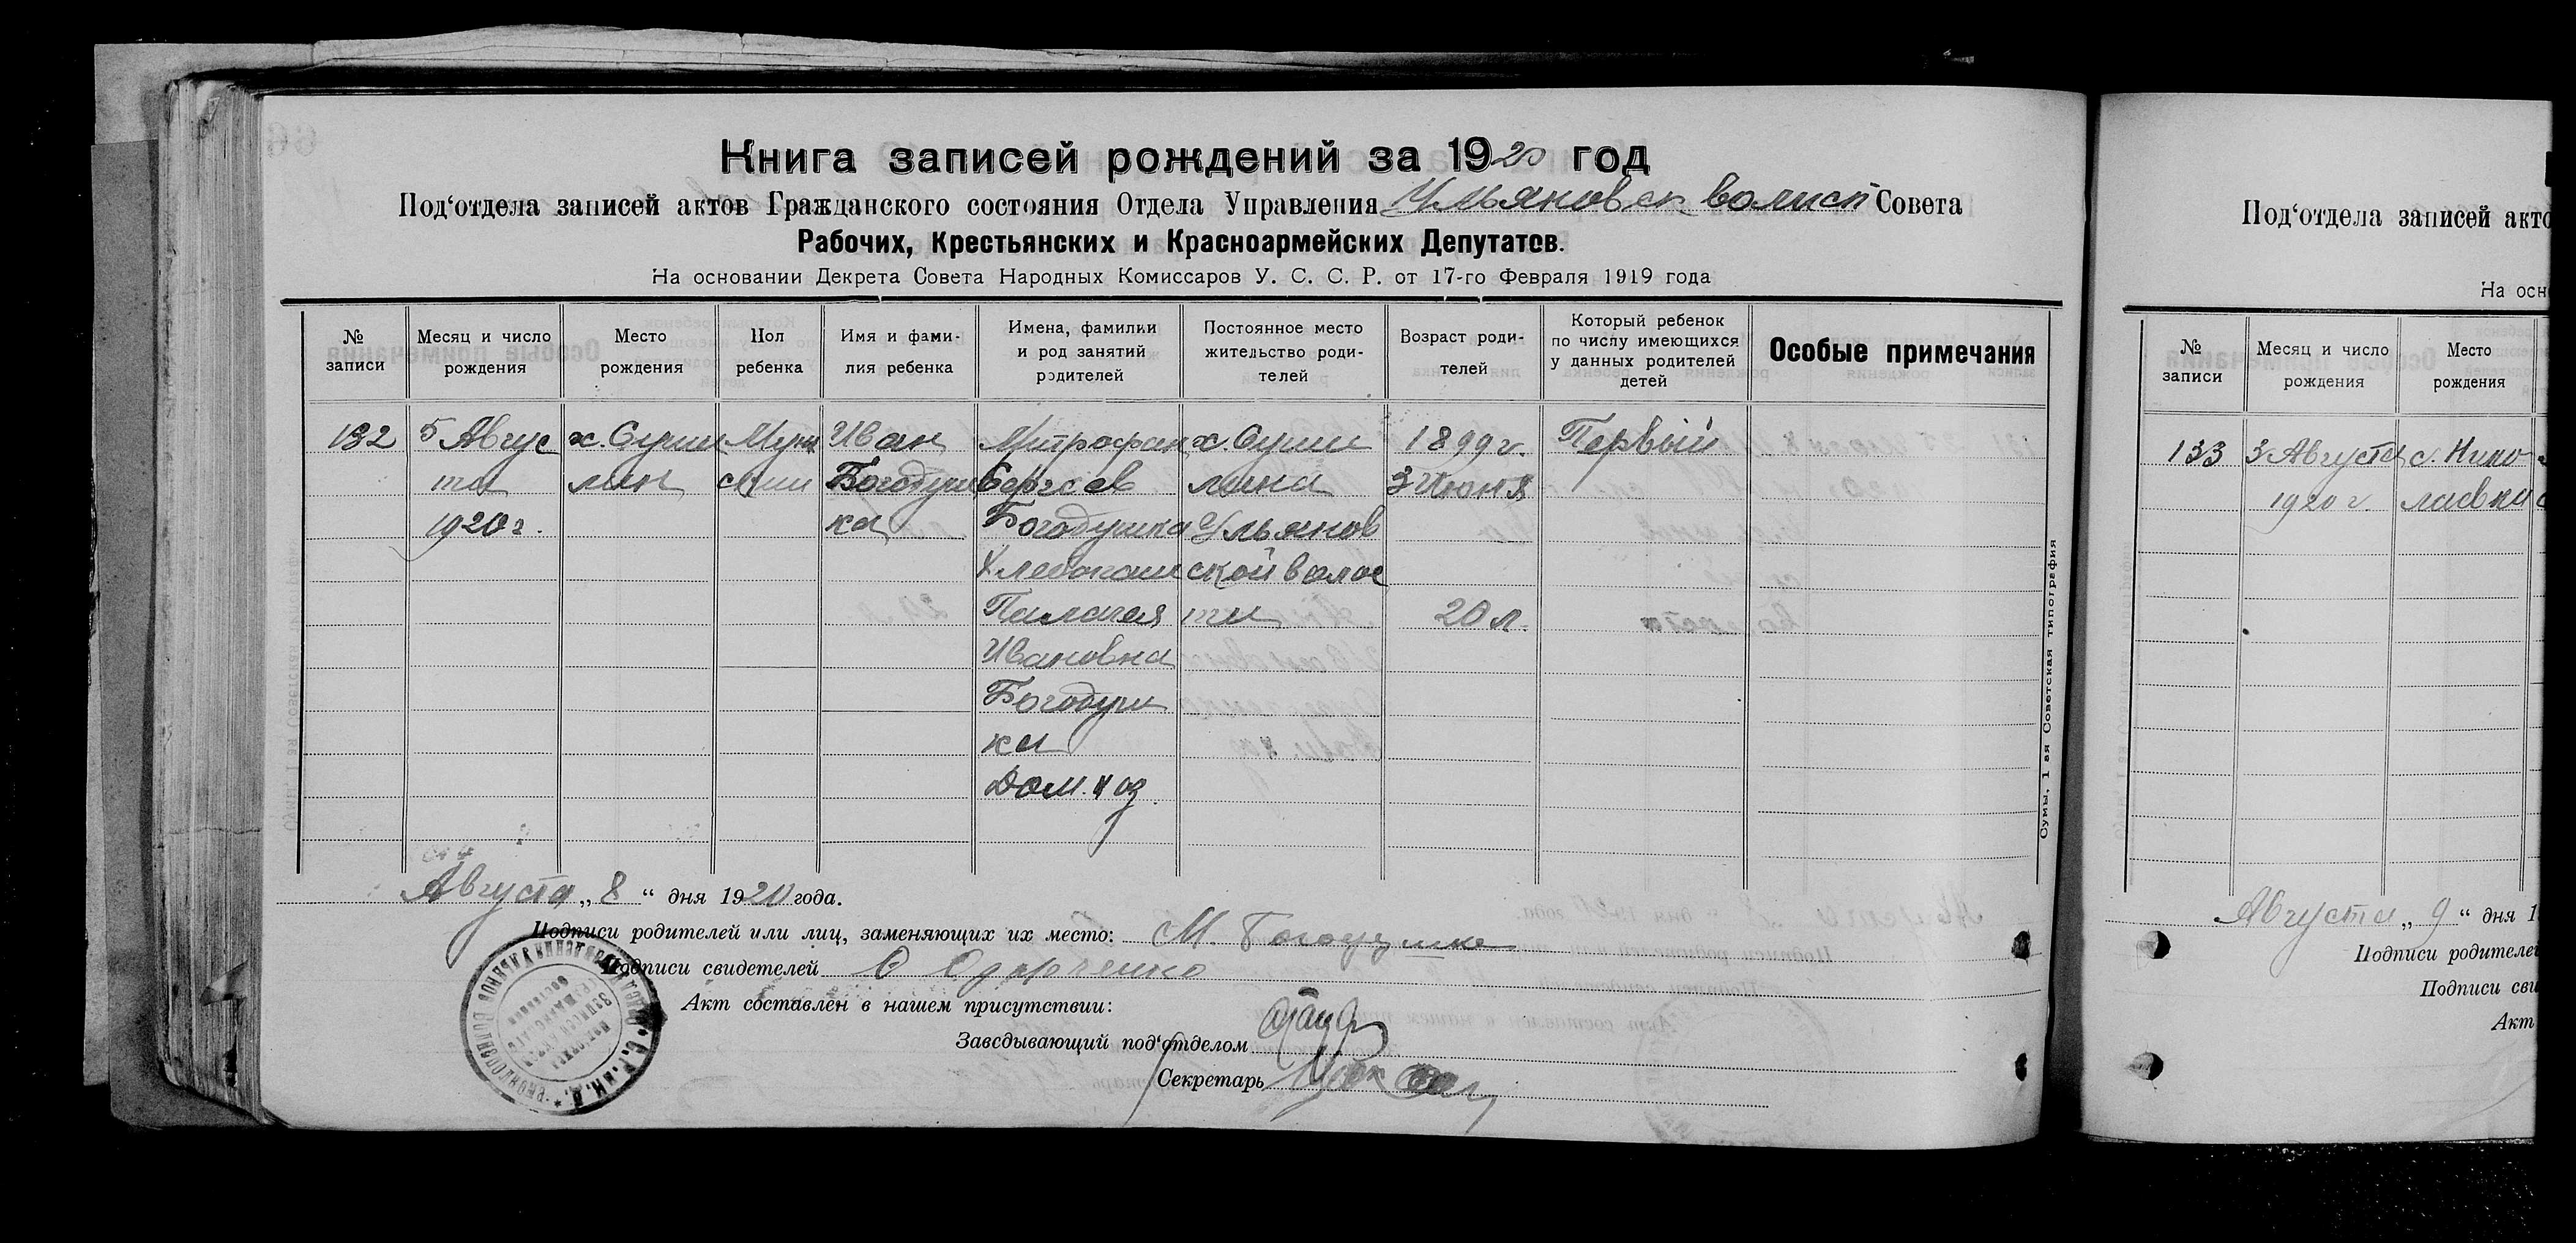 Книга записей рождений за 1920 год
Под‘отдела записей актов Гражданского состояния Отдела Управления Ульяновск волисп Совета
Рабочих, Крестьянских и Красноармейских Депутатов.
На основании Декрета Совета Народных Комиссаров У. С. С. Р. от 17-го Февраля 1919 года
№ записи
Месяц и число рождения
Место рождения
Пол ребенка
Имя и фами-
лия ребенка
Имена, фамилии
и род занятий
родителей
Постоянное место
жительство роди-
телей
Возраст роди-
телей
Который ребенок
по числу имеющихся
у данных родителей
детей
Особые примечания
132
5 Авгус
та
1920 г.
х. Сушили
лин
Муж
ской
Иван
Богодуш
ка
Митрофан
Сергеев
Богодушка
Хлебопаш
Палагея
Ивановна
Богодуш
ка
Дом. хоз.
х. Суши
лина
Ульянов
ской волос
ти
1899 г.
3 Июня
20 л.
Первый
Августа „8“ дня 1920 года.
Подписи родителей или лиц, заменяющих их место: М. Богодушка
Подписи свидетелей
Акт составлен в нашем присутствии:
Заведывающий под‘отделом
Секретарь
Сумы, 1 ая Советская типография
Под‘отдела записей акто
На осн
№ записи
Месяц и число рождения
Место рождения
133
3 Августа
1920 г.
с. Нико
лаевка
Августа „9“ дня 1
Подписи родителей
Подписи сви
Акт